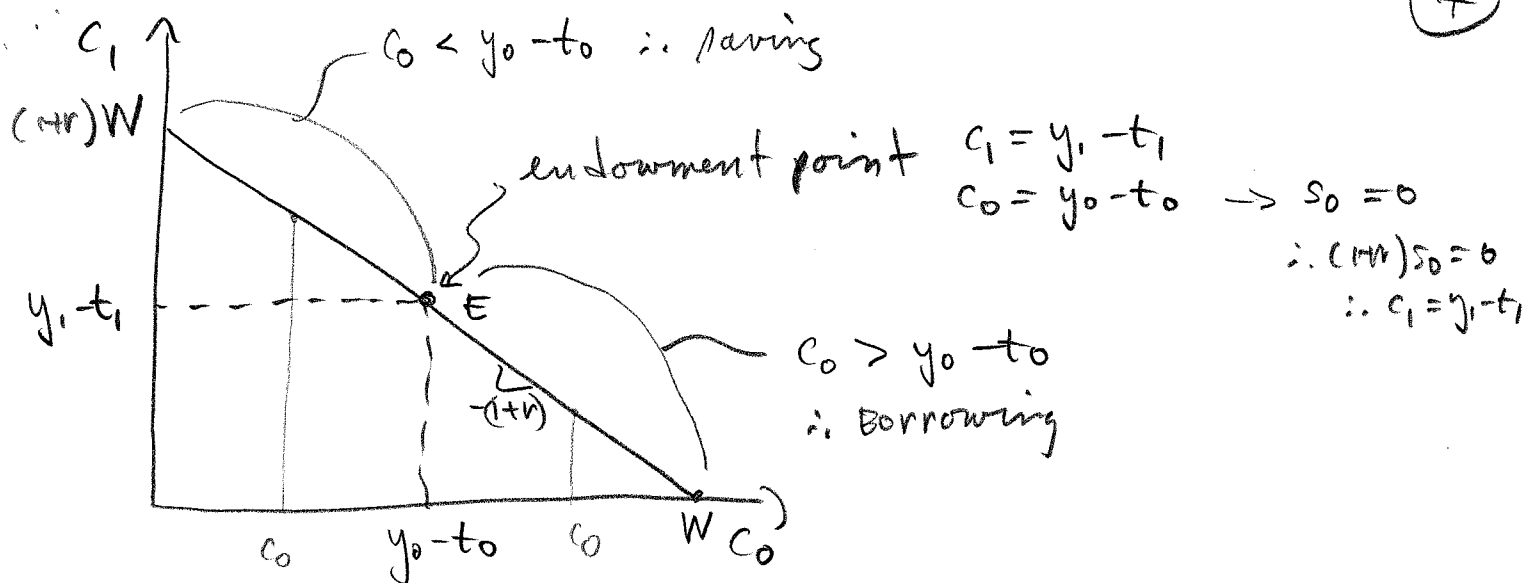 4
C₁
c₀ < y₀ - t₀ ∴ saving
(1+r)W
endowment point c₁ = y₁ - t₁
c₀ = y₀ - t₀ → s₀ = 0
∴ (1+r)s₀ = 0
∴ c₁ = y₁ - t₁
y₁ - t₁
E
c₀ > y₀ - t₀
∴ Borrowing
-(1+r)
c₀ y₀ - t₀ c₀ W C₀